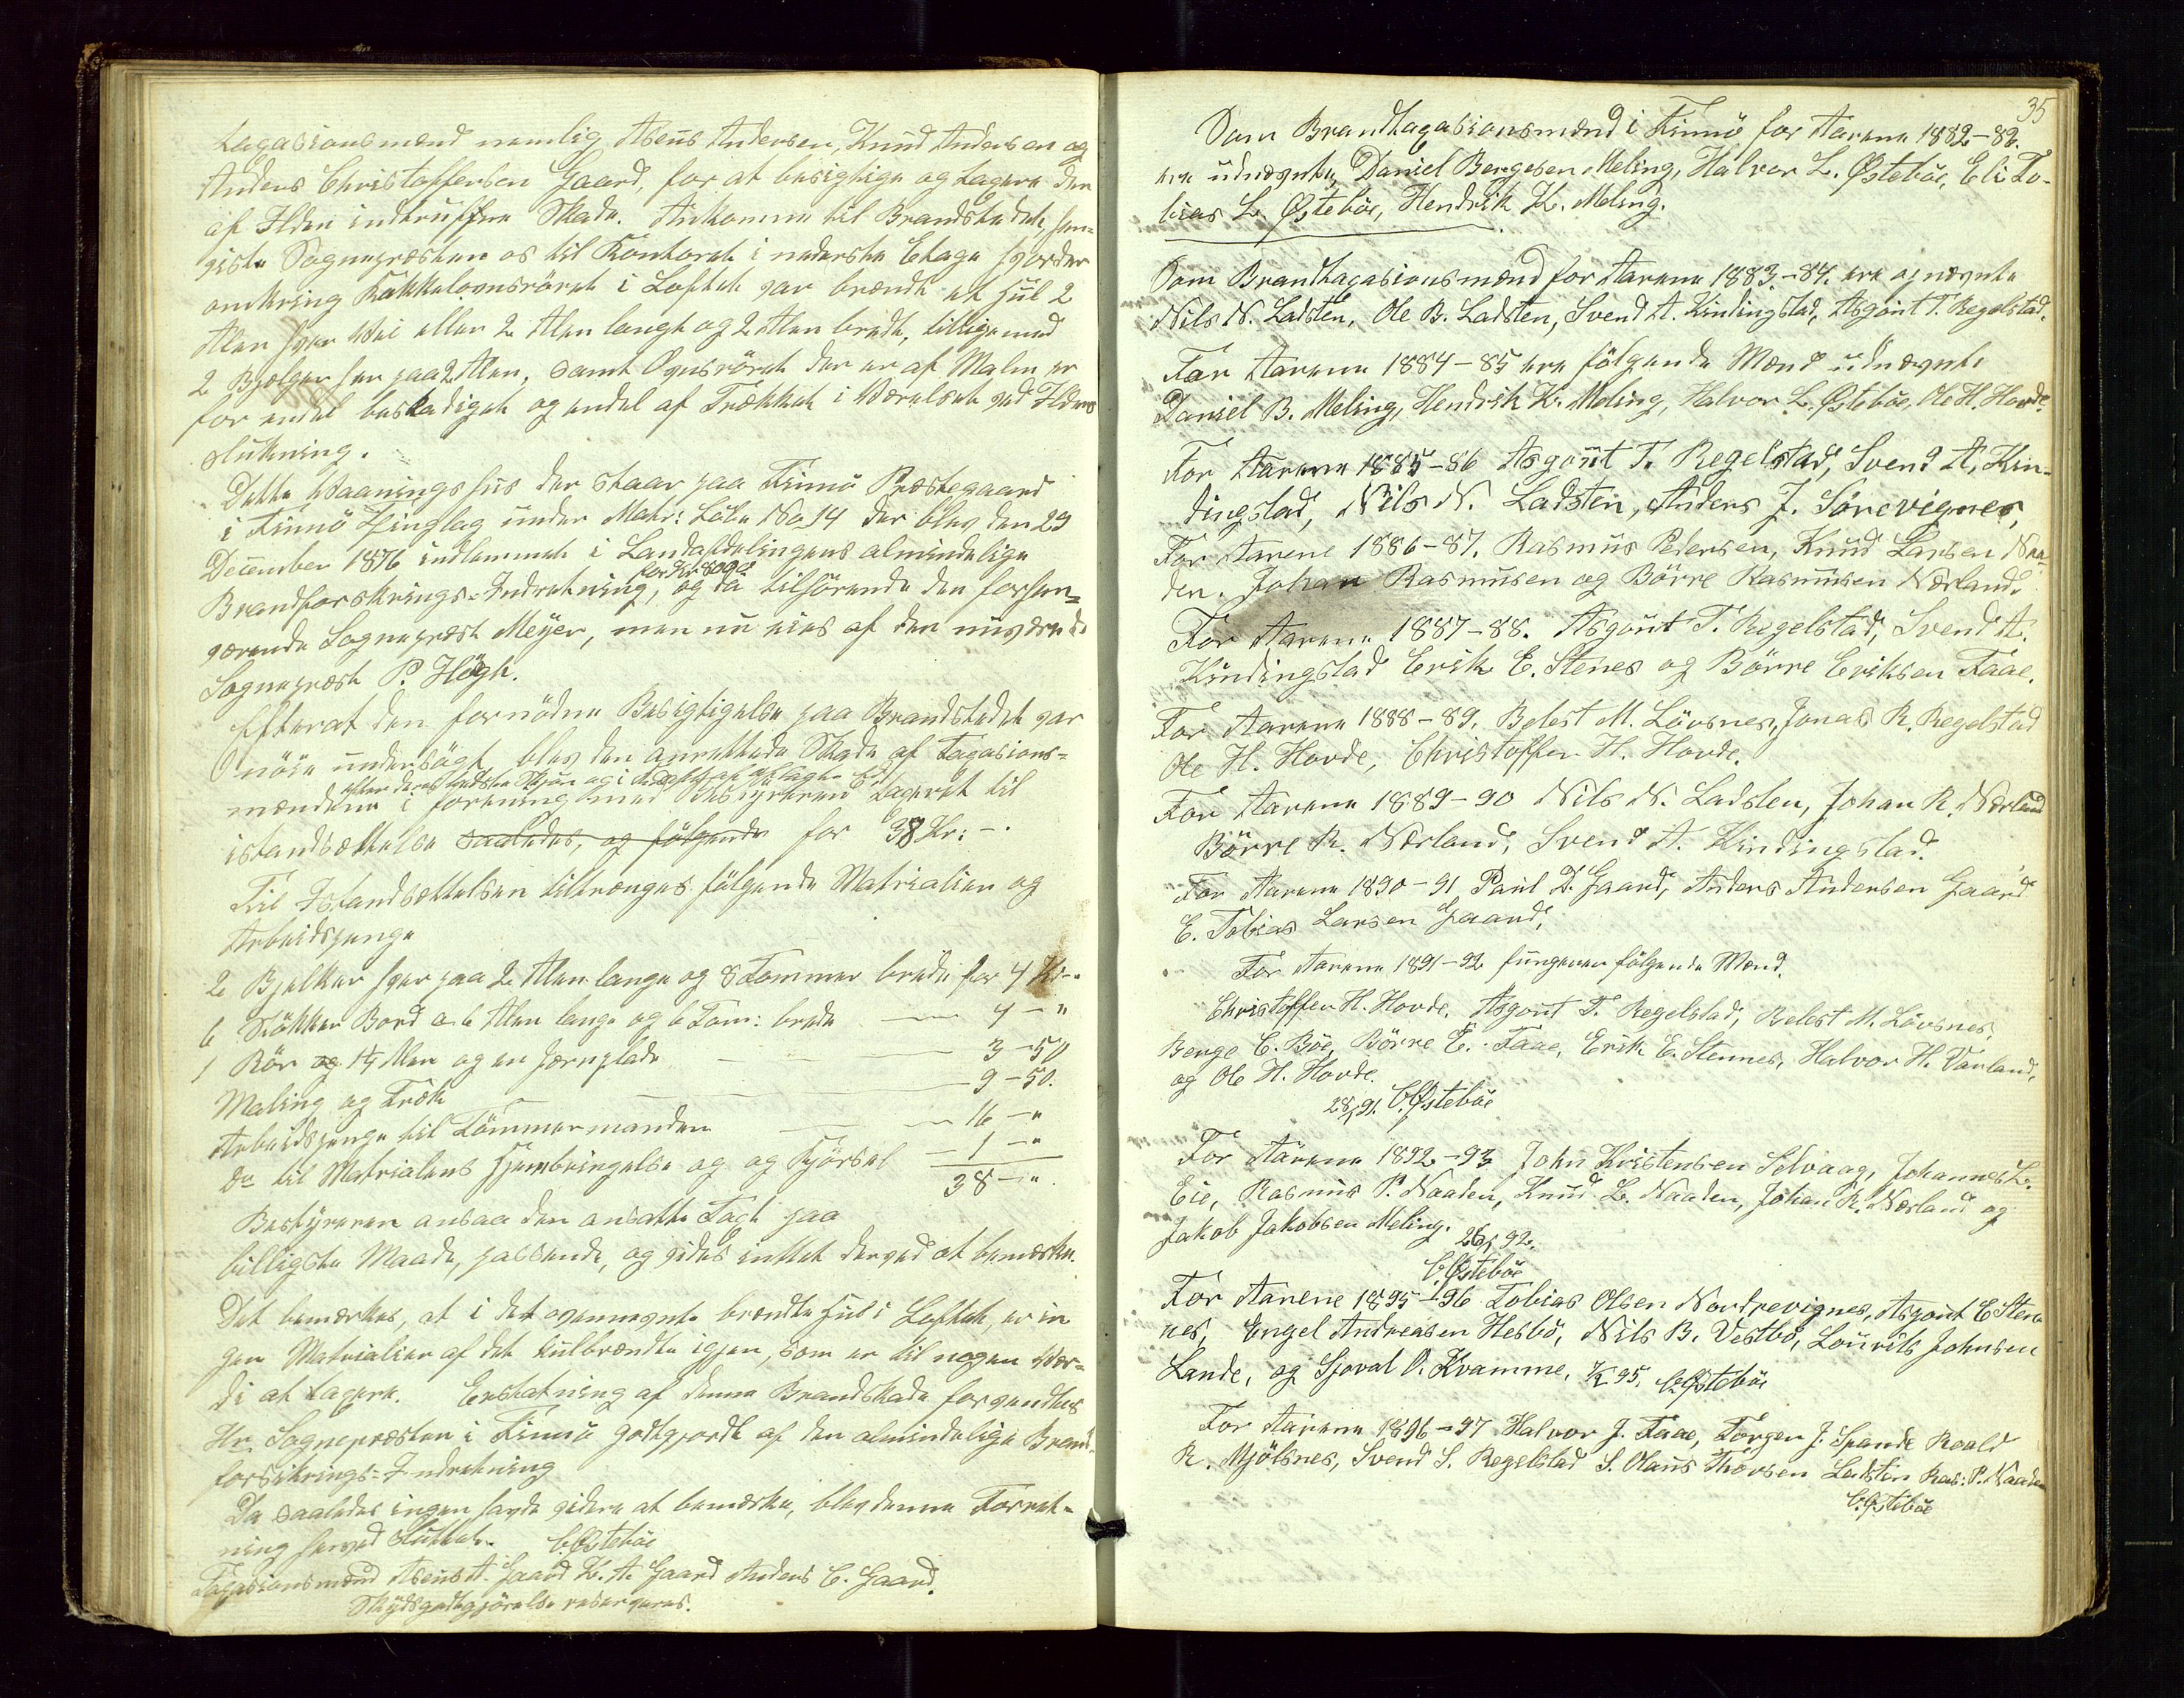 tagasionsmænd nemlig Asens Andersen, Knud Andersen og
Anders Christoffersen Gaard, for at besigtige og tagere den
af Ilden indtruffne Skade. Ankomne til Brandstedet, hen-
viste Sognepresten os til Kontoret i nederste Etage hvorder
omkring Kakkelovnsröret i Loftet var brændt et Hul 2
Alen hver Vei eller 2 Alen langt og 2 Alen bredt, tilligemed
2 Bjelger hver paa 2 Alen, samt Ovnsröret der er af Malm er
for endel beskadiget og endel af Trækket i Værelset ved Ildens
slukning.
Dette Vaaningshus der staar paa Finnö Præstegaard
i Finnö Thinglag under Matr: Löbe No 14 der blev den 29
December 1876 indlemmet i Landafdelingens almindelige
for Kr 8090
Brandforsikrings-Indretning, og da tilhörende den forhen-
værende Sogneprest Meÿer, men nu eies af den nuværende
Sogneprest P. Högh.
Efterat den fornödne Besigtigelse paa Brandstedet var
nöie undersögt, blev den anrettede Skade af Tagasions-
efter deres bedste Skjön og i Kraft af aflagte Ed
mændene i forening med Bestyreren tageret til
istandsættelse saaledes, og fölgende for 38 Kr: -.
Til Istandsættelsen tiltrænges fölgende Matrialier og
Arbeidspenge
2 Bjelker hver paa 2 Alen lange og 8 Tommer brede for 4 Kr -"
6 Stökker Bord a 6 Alen lange og 6 Tom: brede — 4 - "
1 Rör og 1½ Alen og en Jernplade — 3 - 50
Maling og Træk — 9 - 50.
Arbeidspenge til Tömmermanden — 16 - "
Do til Matrialens Hjembringelse og og Kjörsel — 1 - "
38 - ".
Bestyreren ansaa den ansatte Tagt paa
billigste Maade, passende, og vides intet derved at bemærke.
Det bemærkes, at i det ovennævnte brændte Hus i Loftet, er in
gen Matrialier af det Kulbrændte igjen, som er til nogen Vær-
di at tagere. Erstatning af denne Brandskade forventes
Hr. Sognepræsten i Finnö godtgjordt af den almindelige Brand-
forsikrings-Indretning
Da saaledes ingen havde videre at bemærke, blev denne Forret-
ning herved sluttet. C. Östeböe
Tagasionsmænd Asens A. Gaard K. A. Gaard Anders C. Gaard.
Skÿdsgodtgjörelse reserveres.
35
Som Brandtagasionsmænd i Finnö for Aarene 1882-83.
ere udnævnte, Daniel Bergesen Meling, Halvor L. Østeböe, Eli To-
bias L. Østeböe, Hendrik K. Meling.
Som Brandtagasionsmænd for Aarene 1883-84. ere opnævnte
Nils N. Ladsten, Ole B. Ladsten, Svend A. Kindingstad, Asgout T. Regelstad.
For Aarene 1884-85 ere fölgende Mænd udnævnte
Daniel B. Meling, Hendrik K. Meling, Halvor L. Østeböe, Ole H. Hovde.
For Aarene 1885-86 Asgout T. Regelstad, Svend A. Kin-
dingstad, Nils N. Ladsten, Anders J. Sörevignes,
For Aarene 1886-87. Rasmus Pedersen, Knud Larsen Naa-
den. Johan Rasmusen og Börre Rasmusen Nærland.
For Aarene 1887-88. Asgout T. Regelstad, Svend A.
Kindingstad Erik E. Stenes og Börre Eriksen Faae.
For Aarene 1888-89. Belest M. Lövsnes, Jonas R. Regelstad
Ole H. Hovde, Christoffer H. Hovde.
For Aarene 1889-90 Nils N. Ladsten, Johan R. Nærland
Börre R. Nærland, Svend A. Kindingstad.
For Aarene 1890-91 Paul D. Gaard, Anders Andersen Gaard
E. Tobias Larsen Gaard,
For Aarene 1891-92 fungerer fölgende Mænd.
Christoffer H. Hovde. Asgout T. Regelstad, Belest M. Lövsnes,
Berge C. Böe, Börre E. Faae, Erik E. Stennes, Halvor H. Varland,
og Ole H. Hovde.
28/1 91. C. Östeböe
For Aarene 1892-93 John Kristensen Selvaag, Johannes L.
Eie, Rasmus P. Naaden, Knud L. Naaden, Johan R. Nærland og
Jakob Jakobsen Meling. 26/1 92.
C. Östeböe
For Aarene 1895-96 Tobias Olsen Nordrevignes, Asgout E Sten
nes, Engel Andreasen Hesbö, Nils B. Vestbö, Lourits Johnsen
Lande, og Sjoval O. Kvamme. 95. C. Östeböe
For Aarene 1896-97 Halvor J. Faae, Torger J. Spande Roald
R. Mjölsnes, Svend S. Regelstad S. Olaus Thorsen Ladsten Ras: P. Naaden
C. Östeböe